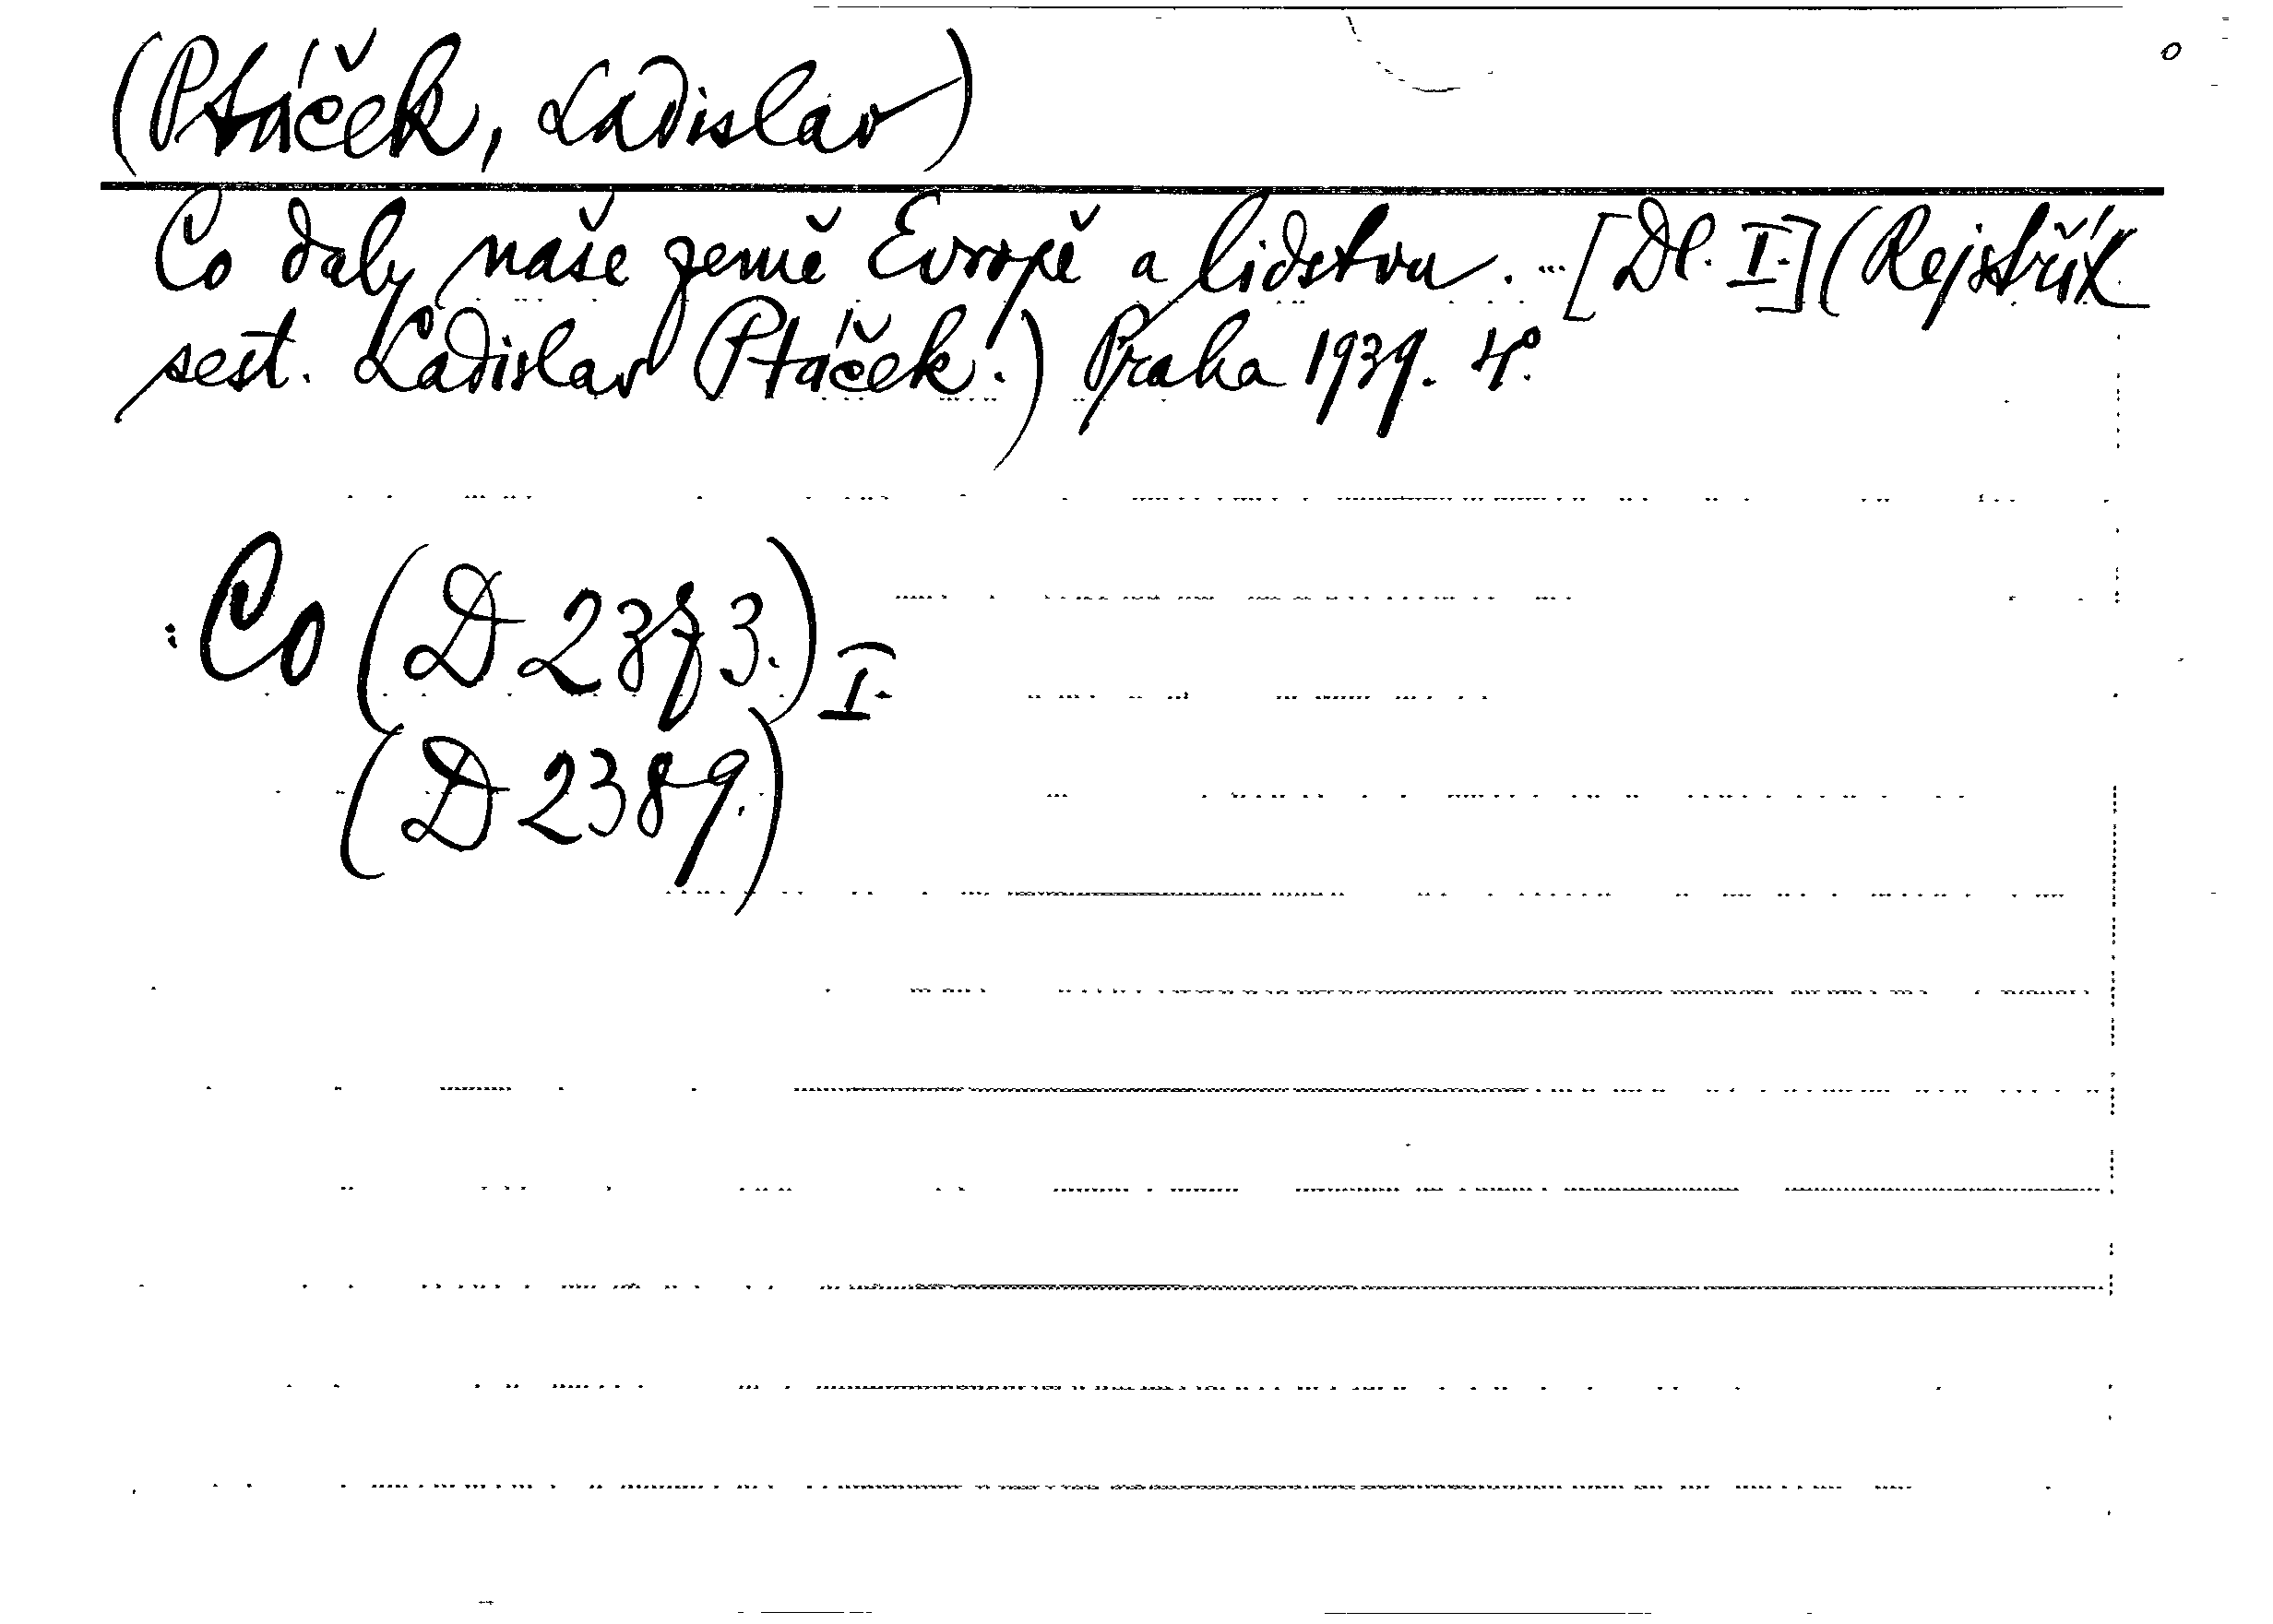 (Ptáček, Ladislav)
Co daly naše země Evropě a lidstvu. ... [Dl. I.] (Rejstřík
sest. Ladislav Ptáček.) Praha 1939. 4°.
: Co (D 2373.) I.
(D 2389.)